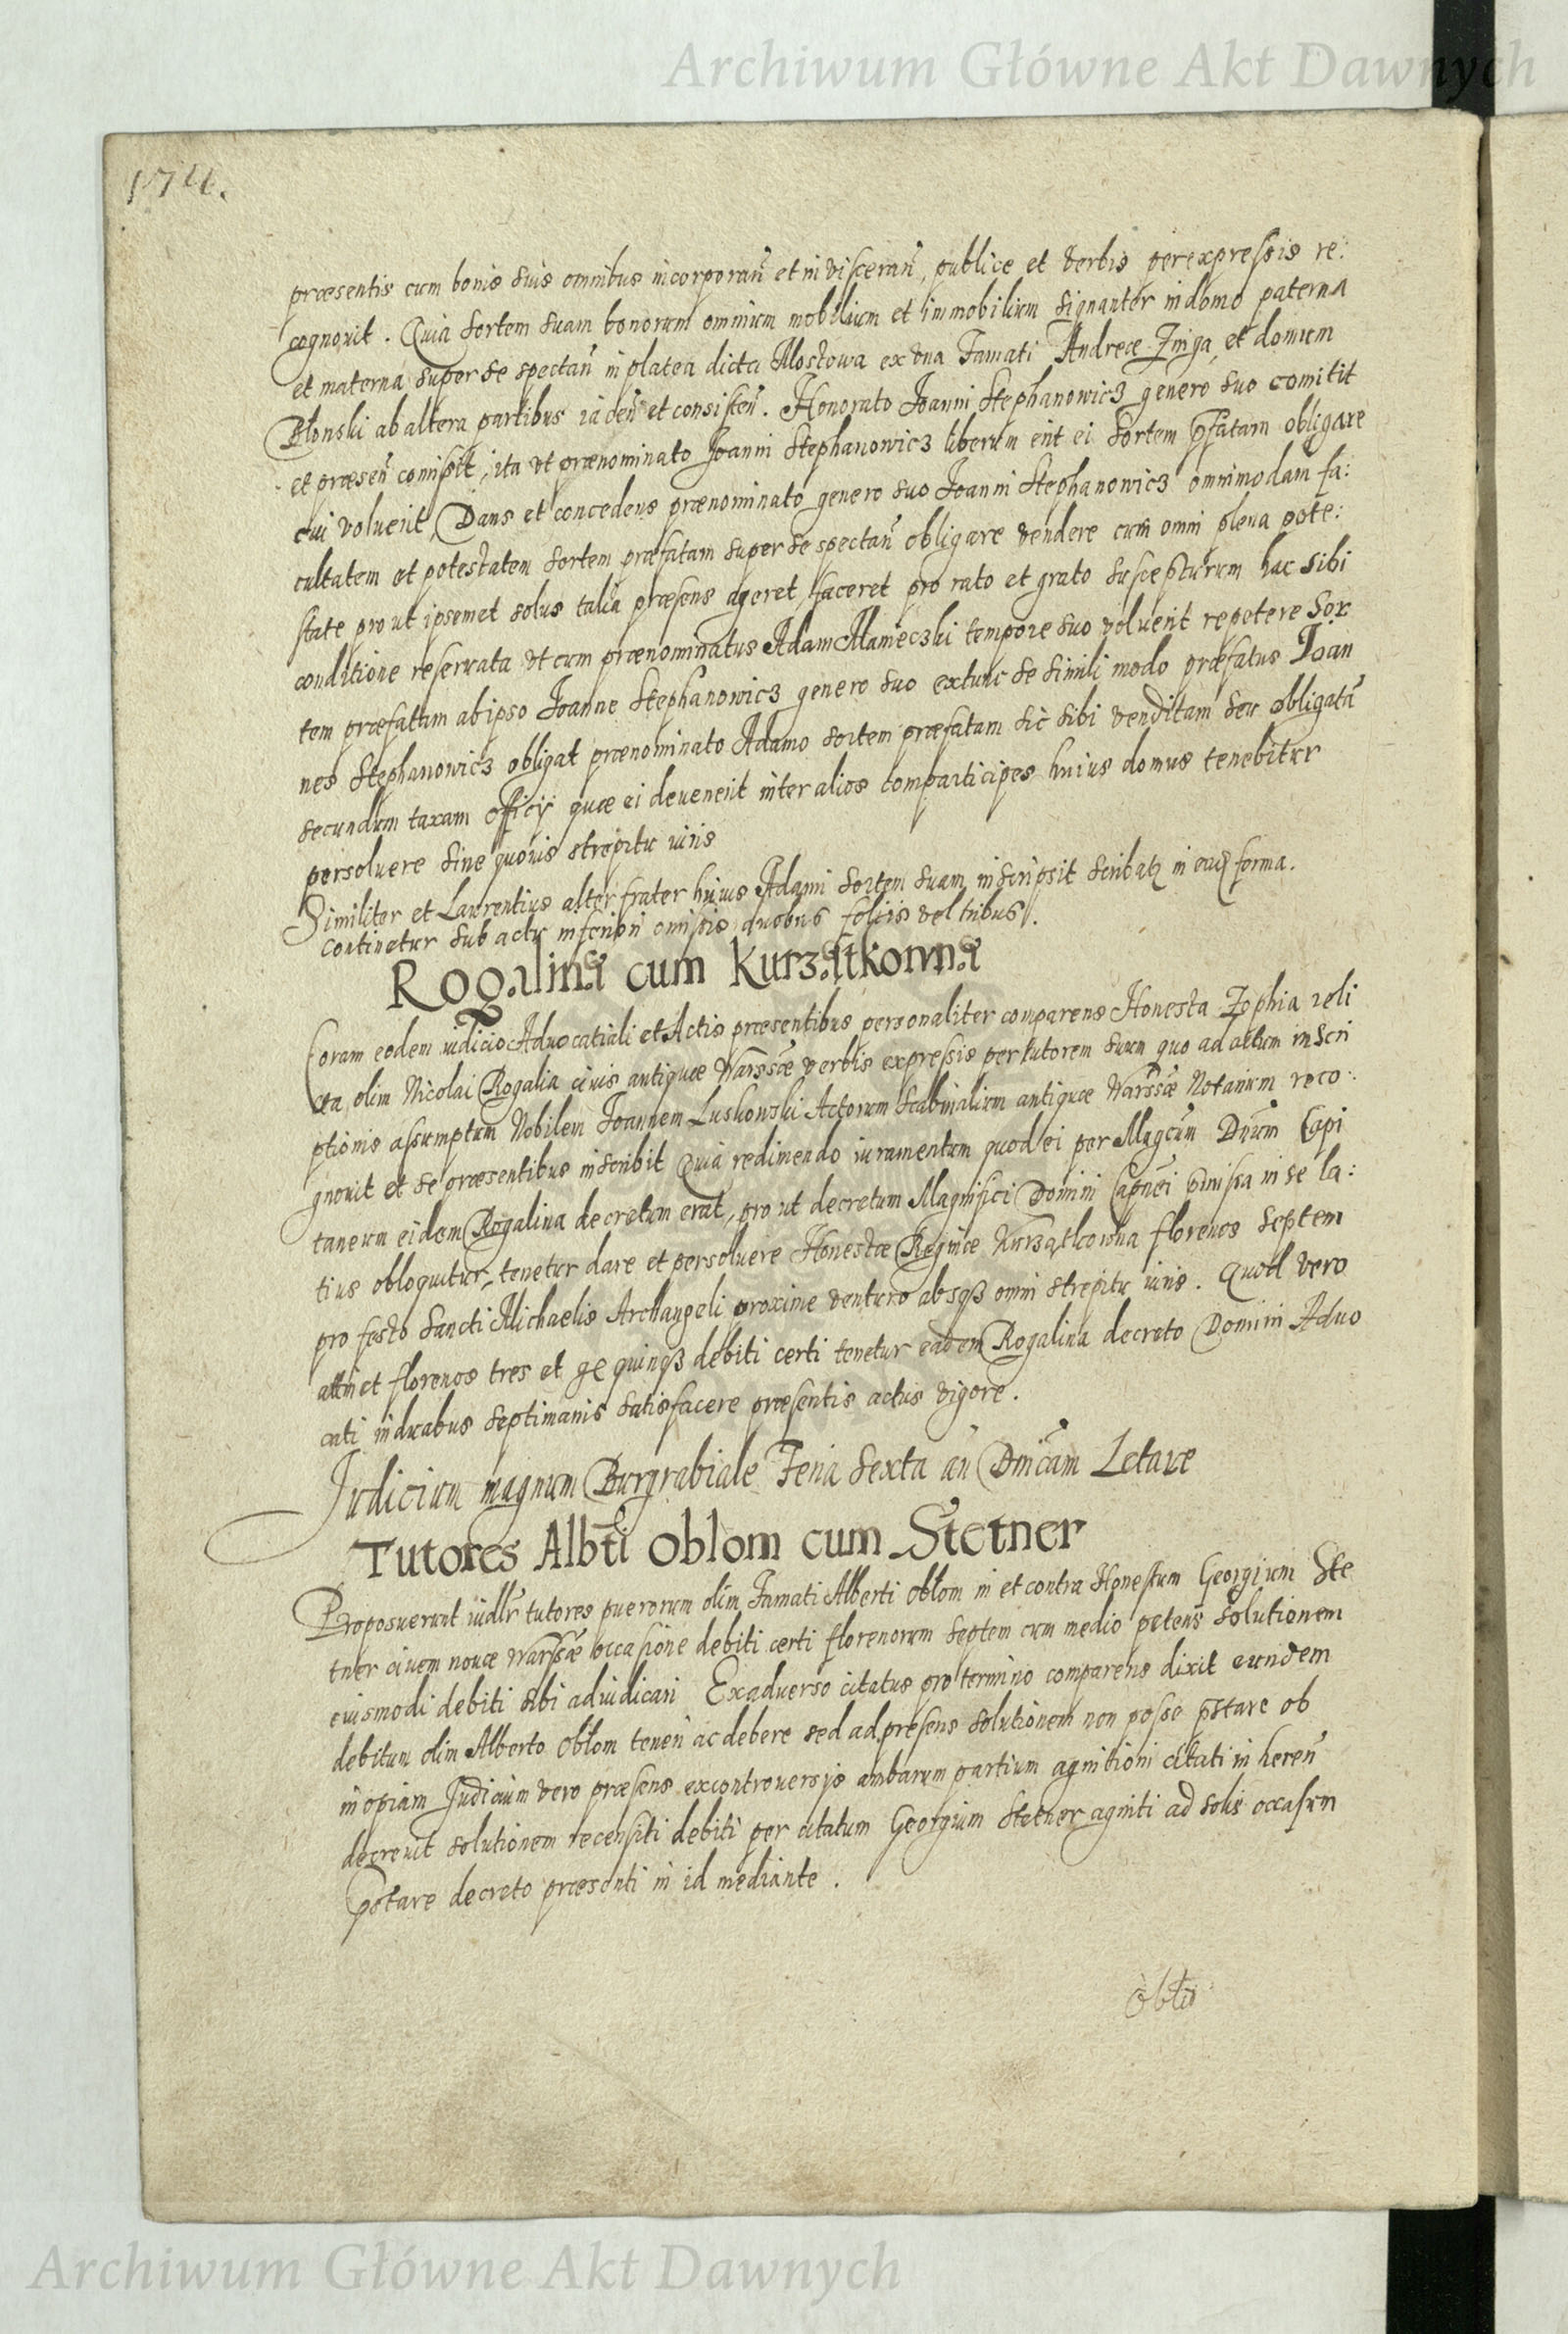 Archiwum Główne Akt Dawnych
174.
præsentis cum bonis suis omnibus incorporan̄ et in visceran̄, publice et verbis per expressis re:
cognovit. Quia sortem suam bonorum omnium mobilium et immobilium signanter in domo paterna
et materna super se spectan̄ in platea dicta Mostowa ex una Famati Andreæ Zinga, et domum
Blonski ab altera partibus iacen̄ et consisten̄. Honorato Joanni Stephanowicz genero suo comitit
et præsen̄ comisit, ita ut prænominato Joanni Stephanowicz liberum erit ei sortem pfatam obligare
cui voluerit, Dans et concedens prænominato genero suo Joanni Stephanowicz omnimodam fa:
cultatem et potestatem sortem præfatam super se spectan̄ obligare vendere cum omni plena pote:
state pro ut ipsemet solus talia præsens ageret, faceret pro rato et grato suscepturum hac sibi
conditione reservata ut cum prænominatus Adam Mameczki tempore suo voluerit repetere Sor
tem præfatam ab ipso Joanne Stephanowicz genero suo extunc se simili modo præfatus Joan
nes Stephanowicz obligat prænominato Adamo sortem præfatam sic sibi venditam seu obligatā
secundum taxam officÿ quæ ei devenerit inter alios comparticipes huius domus tenebitur
persoluere sine quovis strepitu iuris
Similiter et Laurentius alter frater huius Adami sortem suam inscripsit scribatꝫ in eadꝫ forma.
Continetur sub actu inferiori omissis duobus foliis vel tribus.
Rogalina cum Kurzątkowna
Coram eodem iudicio Advocatiali et Actis præsentibus personaliter comparens Honesta Zophia reli
cta olim Nicolai Rogalia civis antiquæ Warssæ verbis expressis per tutorem suum quo ad actum inscri
ptionis assumptum Nobilem Joannem Luskowski Actorum Scabinalium antiquæ Warssæ Notarium reco:
gnovit et se præsentibus inscribit Quia redimendo iuramentum quod ei per Magcum Dnum Capi
taneum eidem Rogalina decretum erat, pro ut decretum Magnifici Domini Capnei in se la:
tius obloquitur, tenetur dare et persoluere Honestæ Reginæ Kurzątkowna florenos septem
pro festo Sancti Michaelis Archangeli proxime venturo absqꝫ omni strepitu iuris. Quod vero
attinet florenos tres et gr quinqꝫ debiti certi tenetur eadem Rogalina decreto Domini Advo
cati in duabus septimanis satisfacere præsentis actus vigore.
Judicium magnum Burgrabiale Feria Sexta an̄ Dnicam Letare
Tutores Albti Oblom cum Stetner
Proposuerunt iudlr tutores puerorum olim Famati Alberti Oblom in et contra Honestum Georgium Ste
tner civem novæ Warssæ occasione debiti certi florenorum septem cum medio peten̄s solutionem
eiusmodi debiti sibi adiudicari Exadverso citatus pro termino comparens dixit eundem
debitum olim Alberto Oblom teneri ac debere sed ad præsens solutionem non posse pstare ob
inopiam Judicium vero præsens ex controversÿs ambarum partium agnitioni citati in heren̄
decrevit solutionem recensiti debiti per citatum Georgium Stetner agniti ad solis occasum
pstare decreto præsenti in id mediante.
Archiwum Główne Akt Dawnych